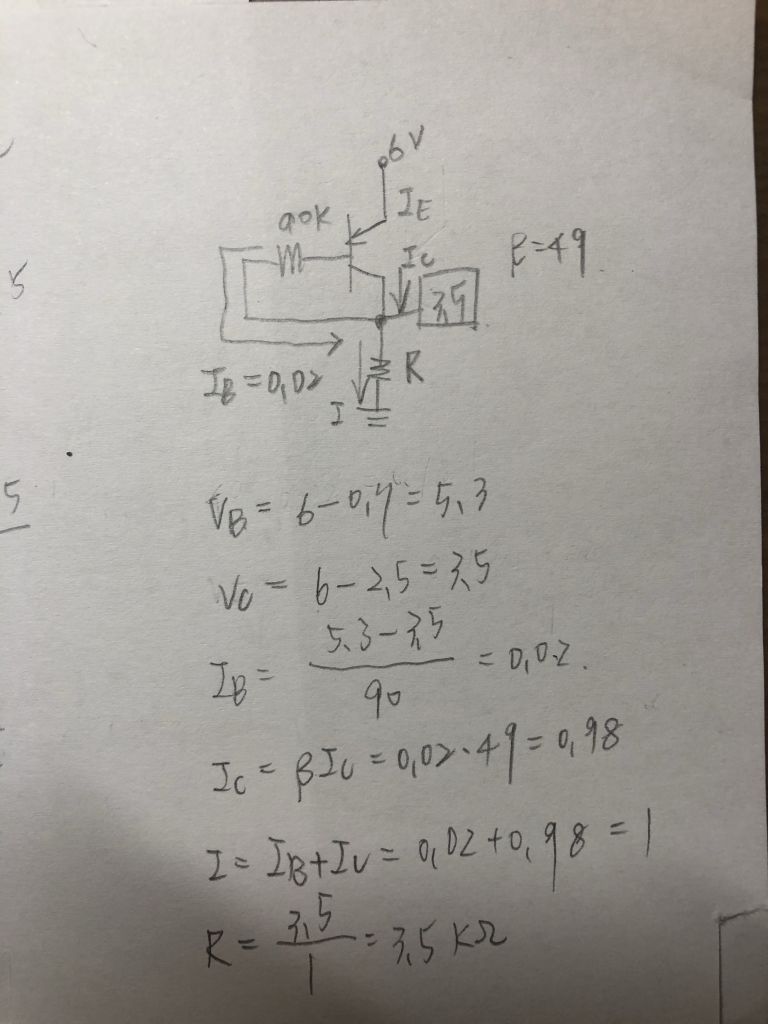 6V
IE
90K
IC
β=49
3,5
5
IB=0,02
R
I
VB= 6-0,7=5,3
5
VC= 6-2,5=3,5
IB= 5.3-3,5 / 90 =0,02.
IC=βIC=0,02·49=0,98
I=IB+IC=0,02+0,98=1
R= 3,5 / 1 =3,5 KΩ